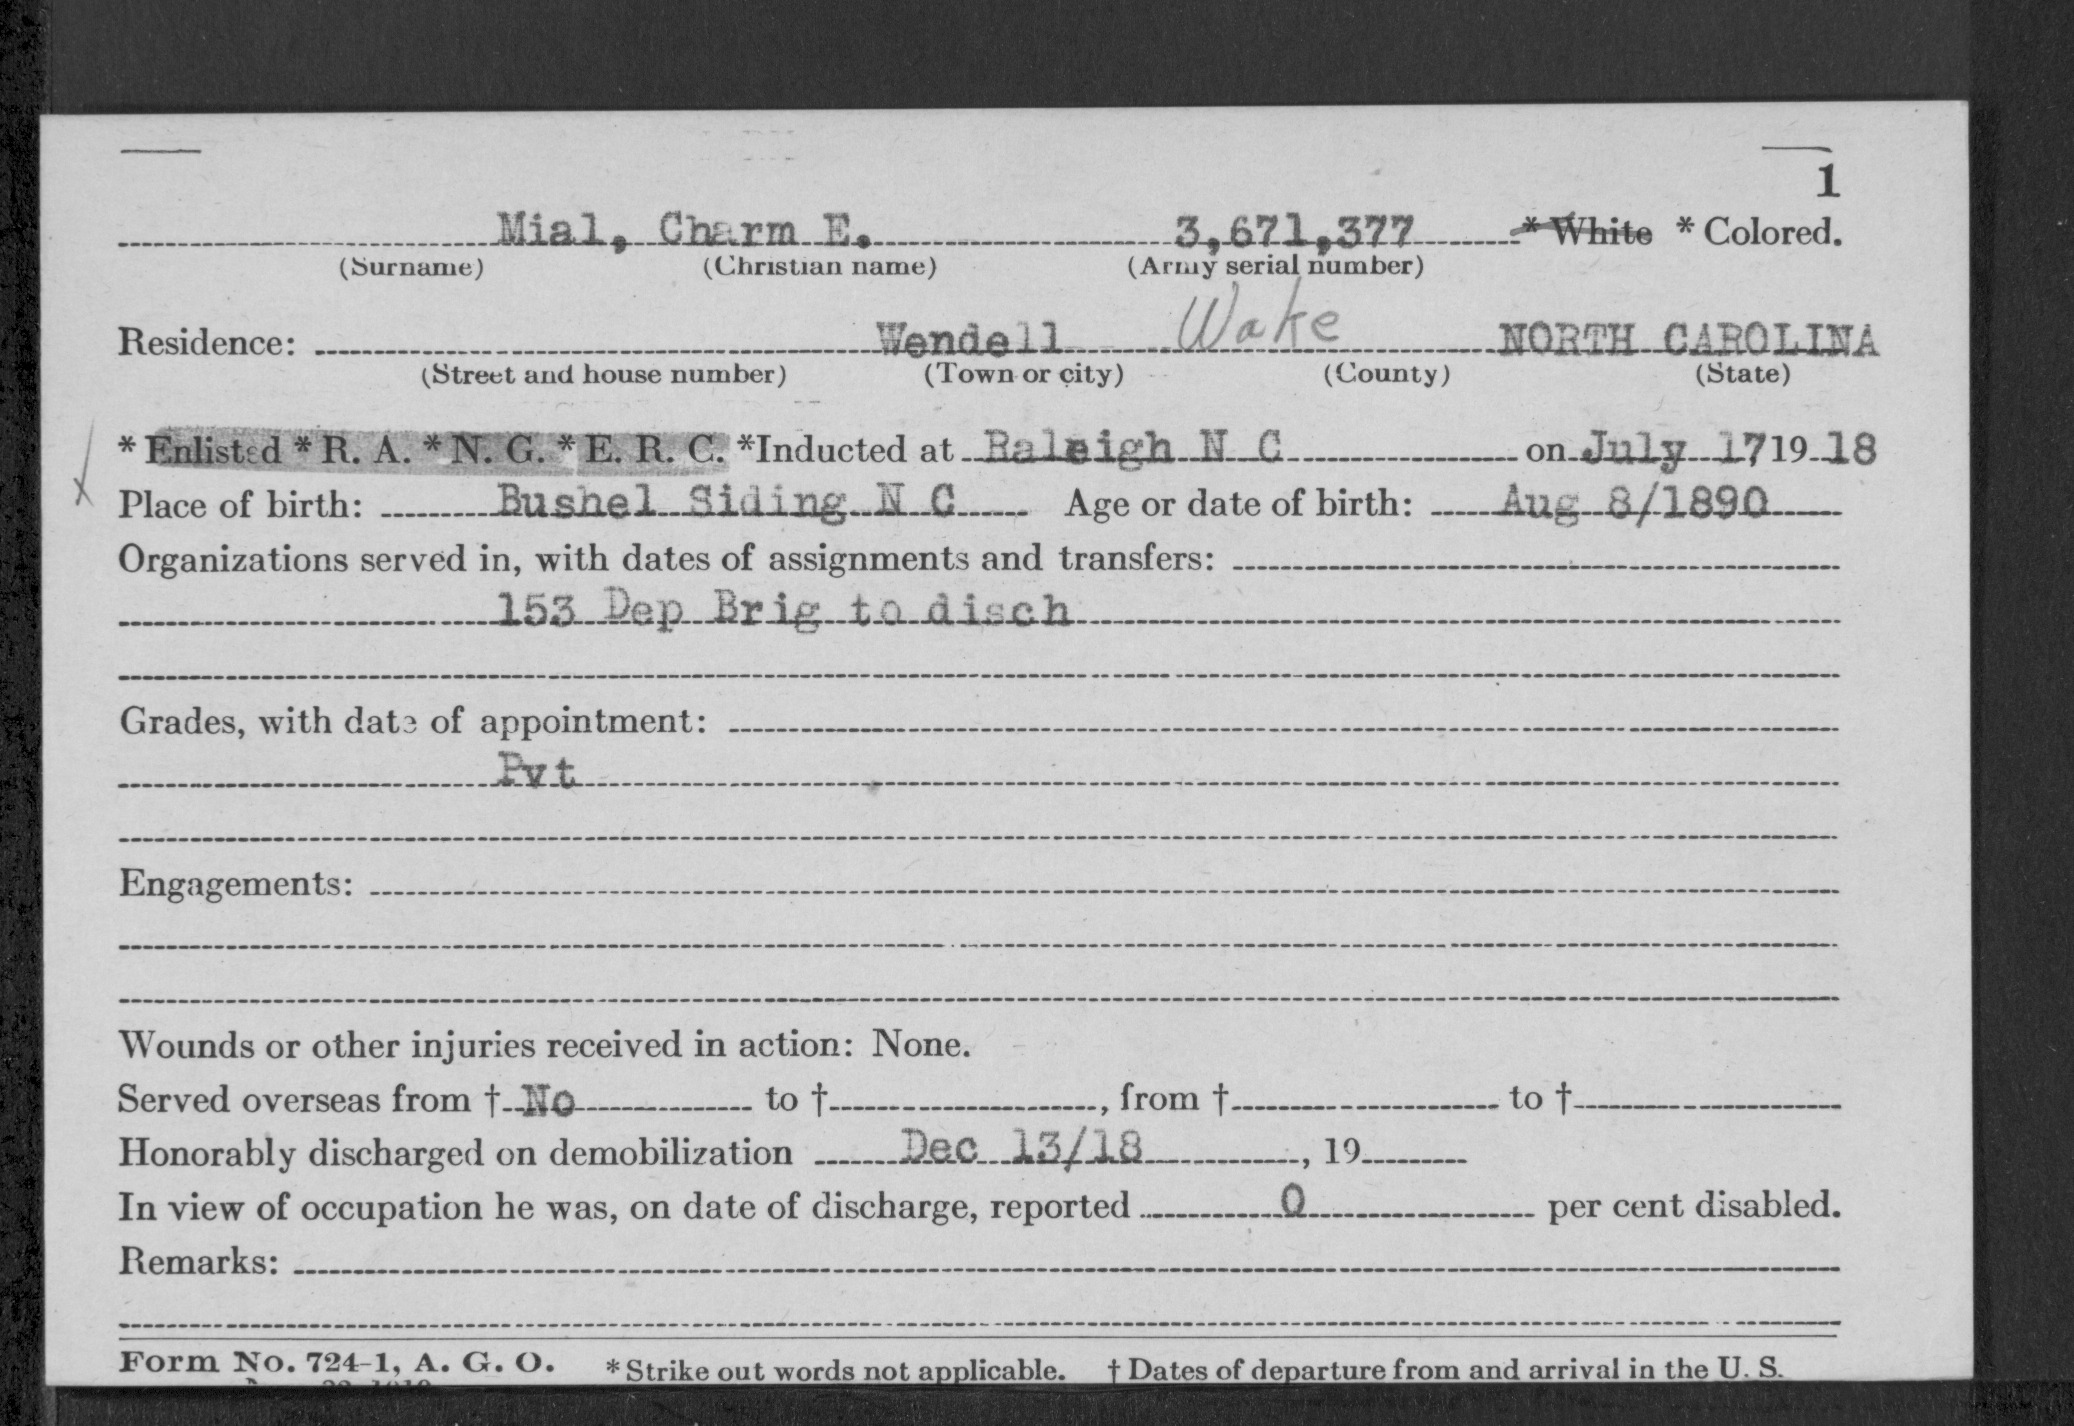 1
Mial, Charm E. 3,671,377 * White * Colored.
(Surname) (Christian name) (Army serial number)
Wake
Residence: Wendell NORTH CAROLINA
(Street and house number) (Town or city) (County) (State)
* Enlisted * R. A. * N. G. * E. R. C. *Inducted at Raleigh N C on July 17 19 18
Place of birth: Bushel Siding N C Age or date of birth: Aug 8/1890
Organizations served in, with dates of assignments and transfers:
153 Dep Brig to disch
Grades, with date of appointment:
Pvt
Engagements:
Wounds or other injuries received in action: None.
Served overseas from † No to † , from † to †
Honorably discharged on demobilization Dec 13/18 , 19
In view of occupation he was, on date of discharge, reported 0 per cent disabled.
Remarks:
Form No. 724-1, A. G. O. * Strike out words not applicable. † Dates of departure from and arrival in the U. S.